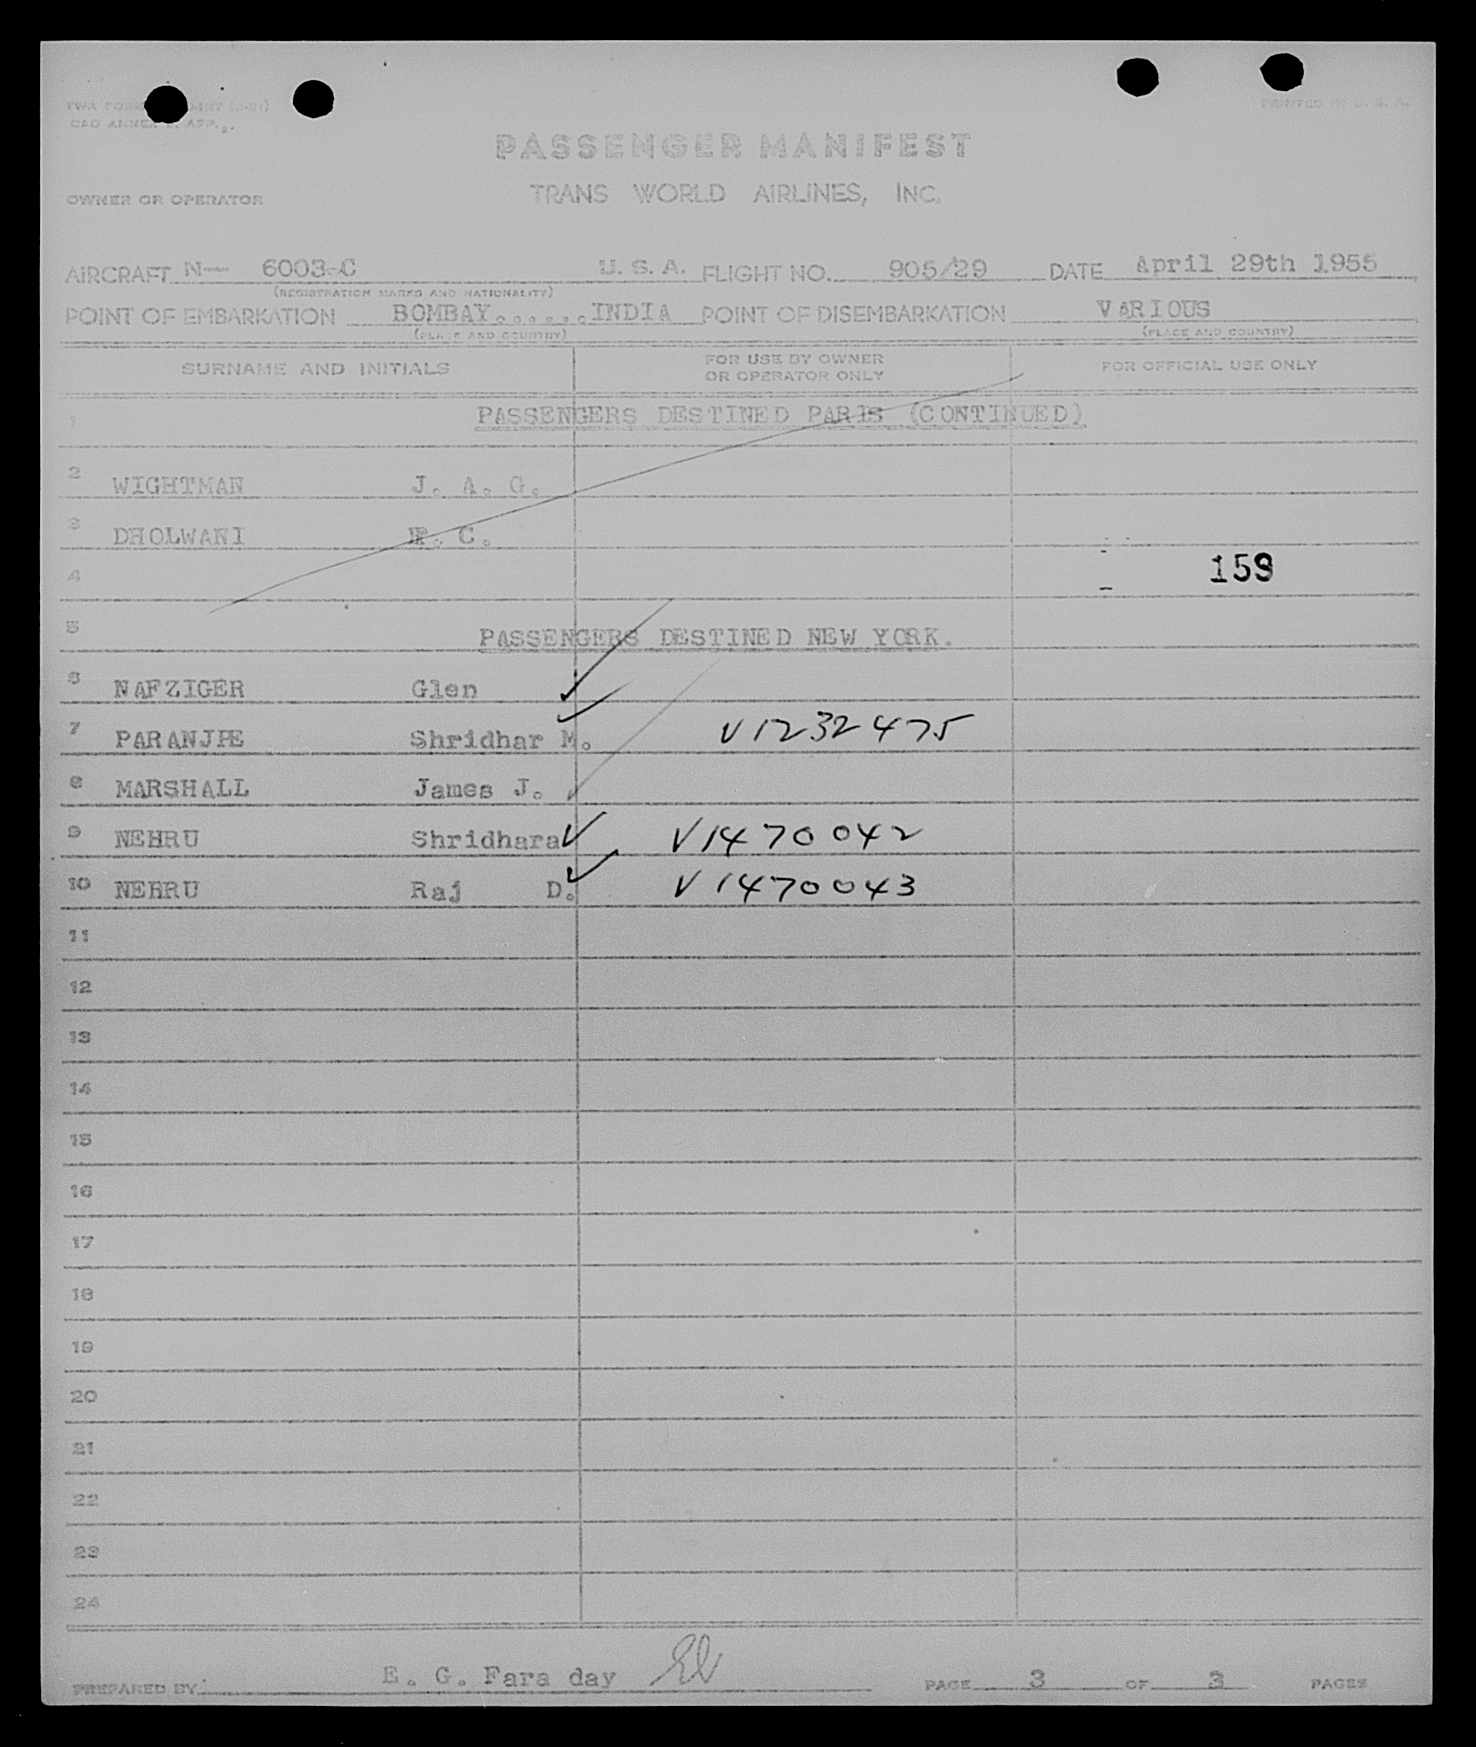 PRINTED IN U. S. A.
PASSENGER MANIFEST
OWNER OR OPERATOR TRANS WORLD AIRLINES, INC.
AIRCRAFT N-- 6003-C U. S. A. FLIGHT NO. 905/29 DATE April 29th 1955
(REGISTRATION MARKS AND NATIONALITY)
POINT OF EMBARKATION BOMBAY......INDIA POINT OF DISEMBARKATION VARIOUS
(PLACE AND COUNTRY) (PLACE AND COUNTRY)
SURNAME AND INITIALS FOR USE BY OWNER OR OPERATOR ONLY FOR OFFICIAL USE ONLY
1 PASSENGERS DESTINED PARIS (CONTINUED)
2 WIGHTMAN J. A. G.
3 DHOLWANI C.
4 159
5 PASSENGERS DESTINED NEW YORK.
6 NAFZIGER Glen ✓
7 PARANJPE Shridhar M. ✓ V1232475
8 MARSHALL James J. ✓
9 NEHRU Shridhara ✓ V1470042
10 NEHRU Raj D. ✓ V1470043
11
12
13
14
15
16
17
18
19
20
21
22
23
24
PREPARED BY: E. G. Fara day PAGE 3 OF 3 PAGES